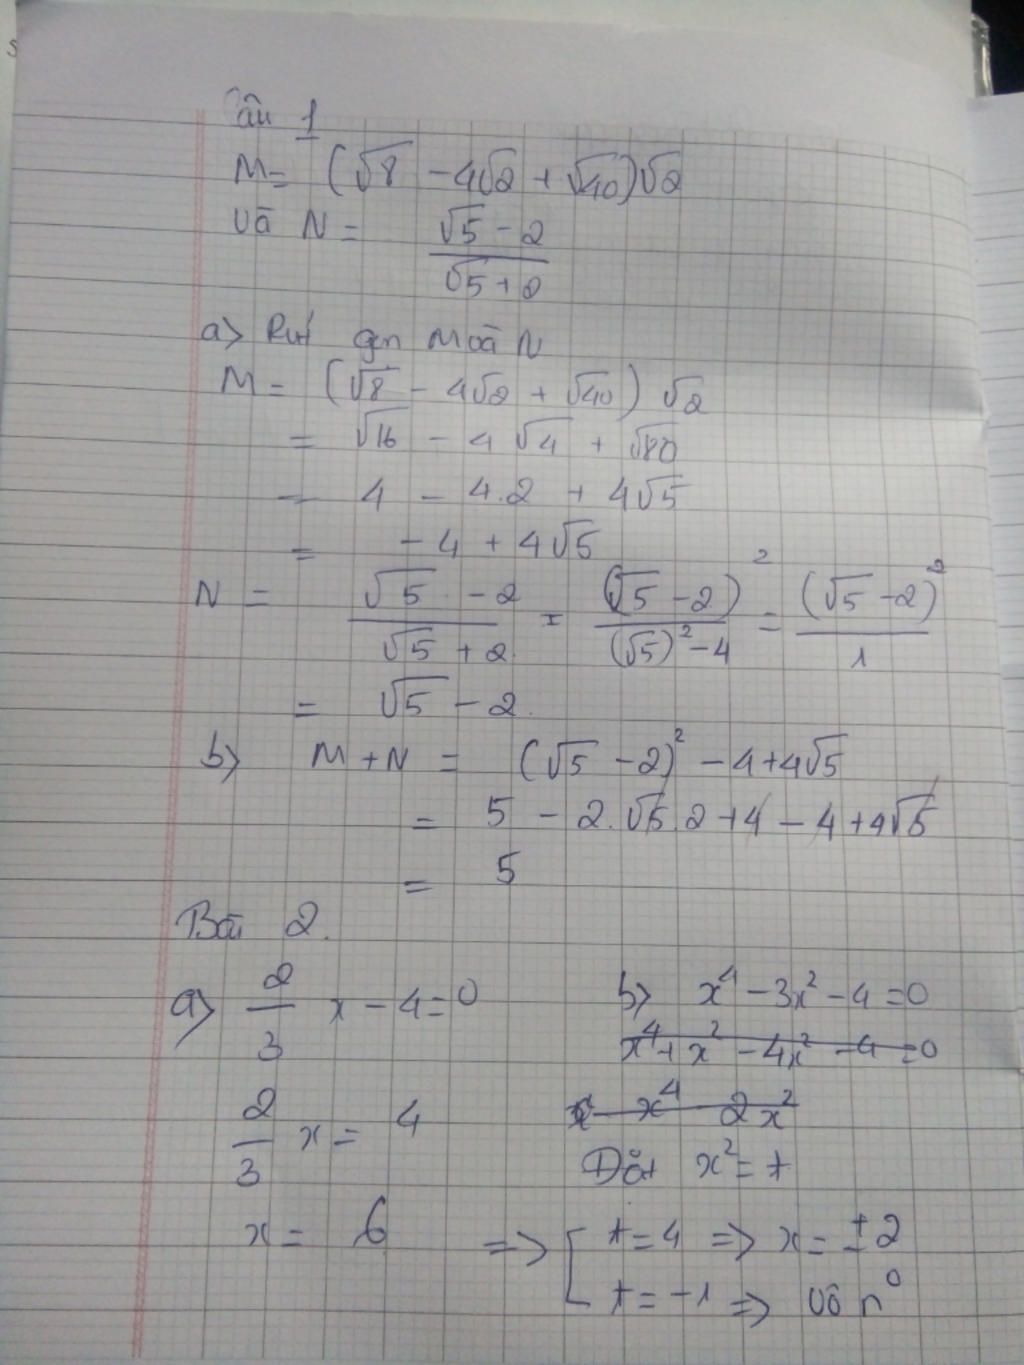 Câu 1
M = (√8 - 4√2 + √40)√2
và N = (√5 - 2)/(√5 + 2)
a> Rút gọn M và N
M = (√8 - 4√2 + √40) √2
= √16 - 4√4 + √80
= 4 - 4.2 + 4√5
= -4 + 4√5
N = (√5 - 2)/(√5 + 2) = (√5 - 2)²/((√5)² - 4) = (√5 - 2)²/1
= √5 - 2
b) M + N = (√5 - 2)² - 4 + 4√5
= 5 - 2.√5.2 + 4 - 4 + 4√5
= 5
Bài 2.
a> 2/3 x - 4 = 0
2/3 x = 4
x = 6
b> x⁴ - 3x² - 4 = 0
x⁴ + x² - 4x² - 4 = 0
x⁴ 2x²
Đặt x² = t
=> [ t = 4 => x = ±2
t = -1 => Vô n⁰